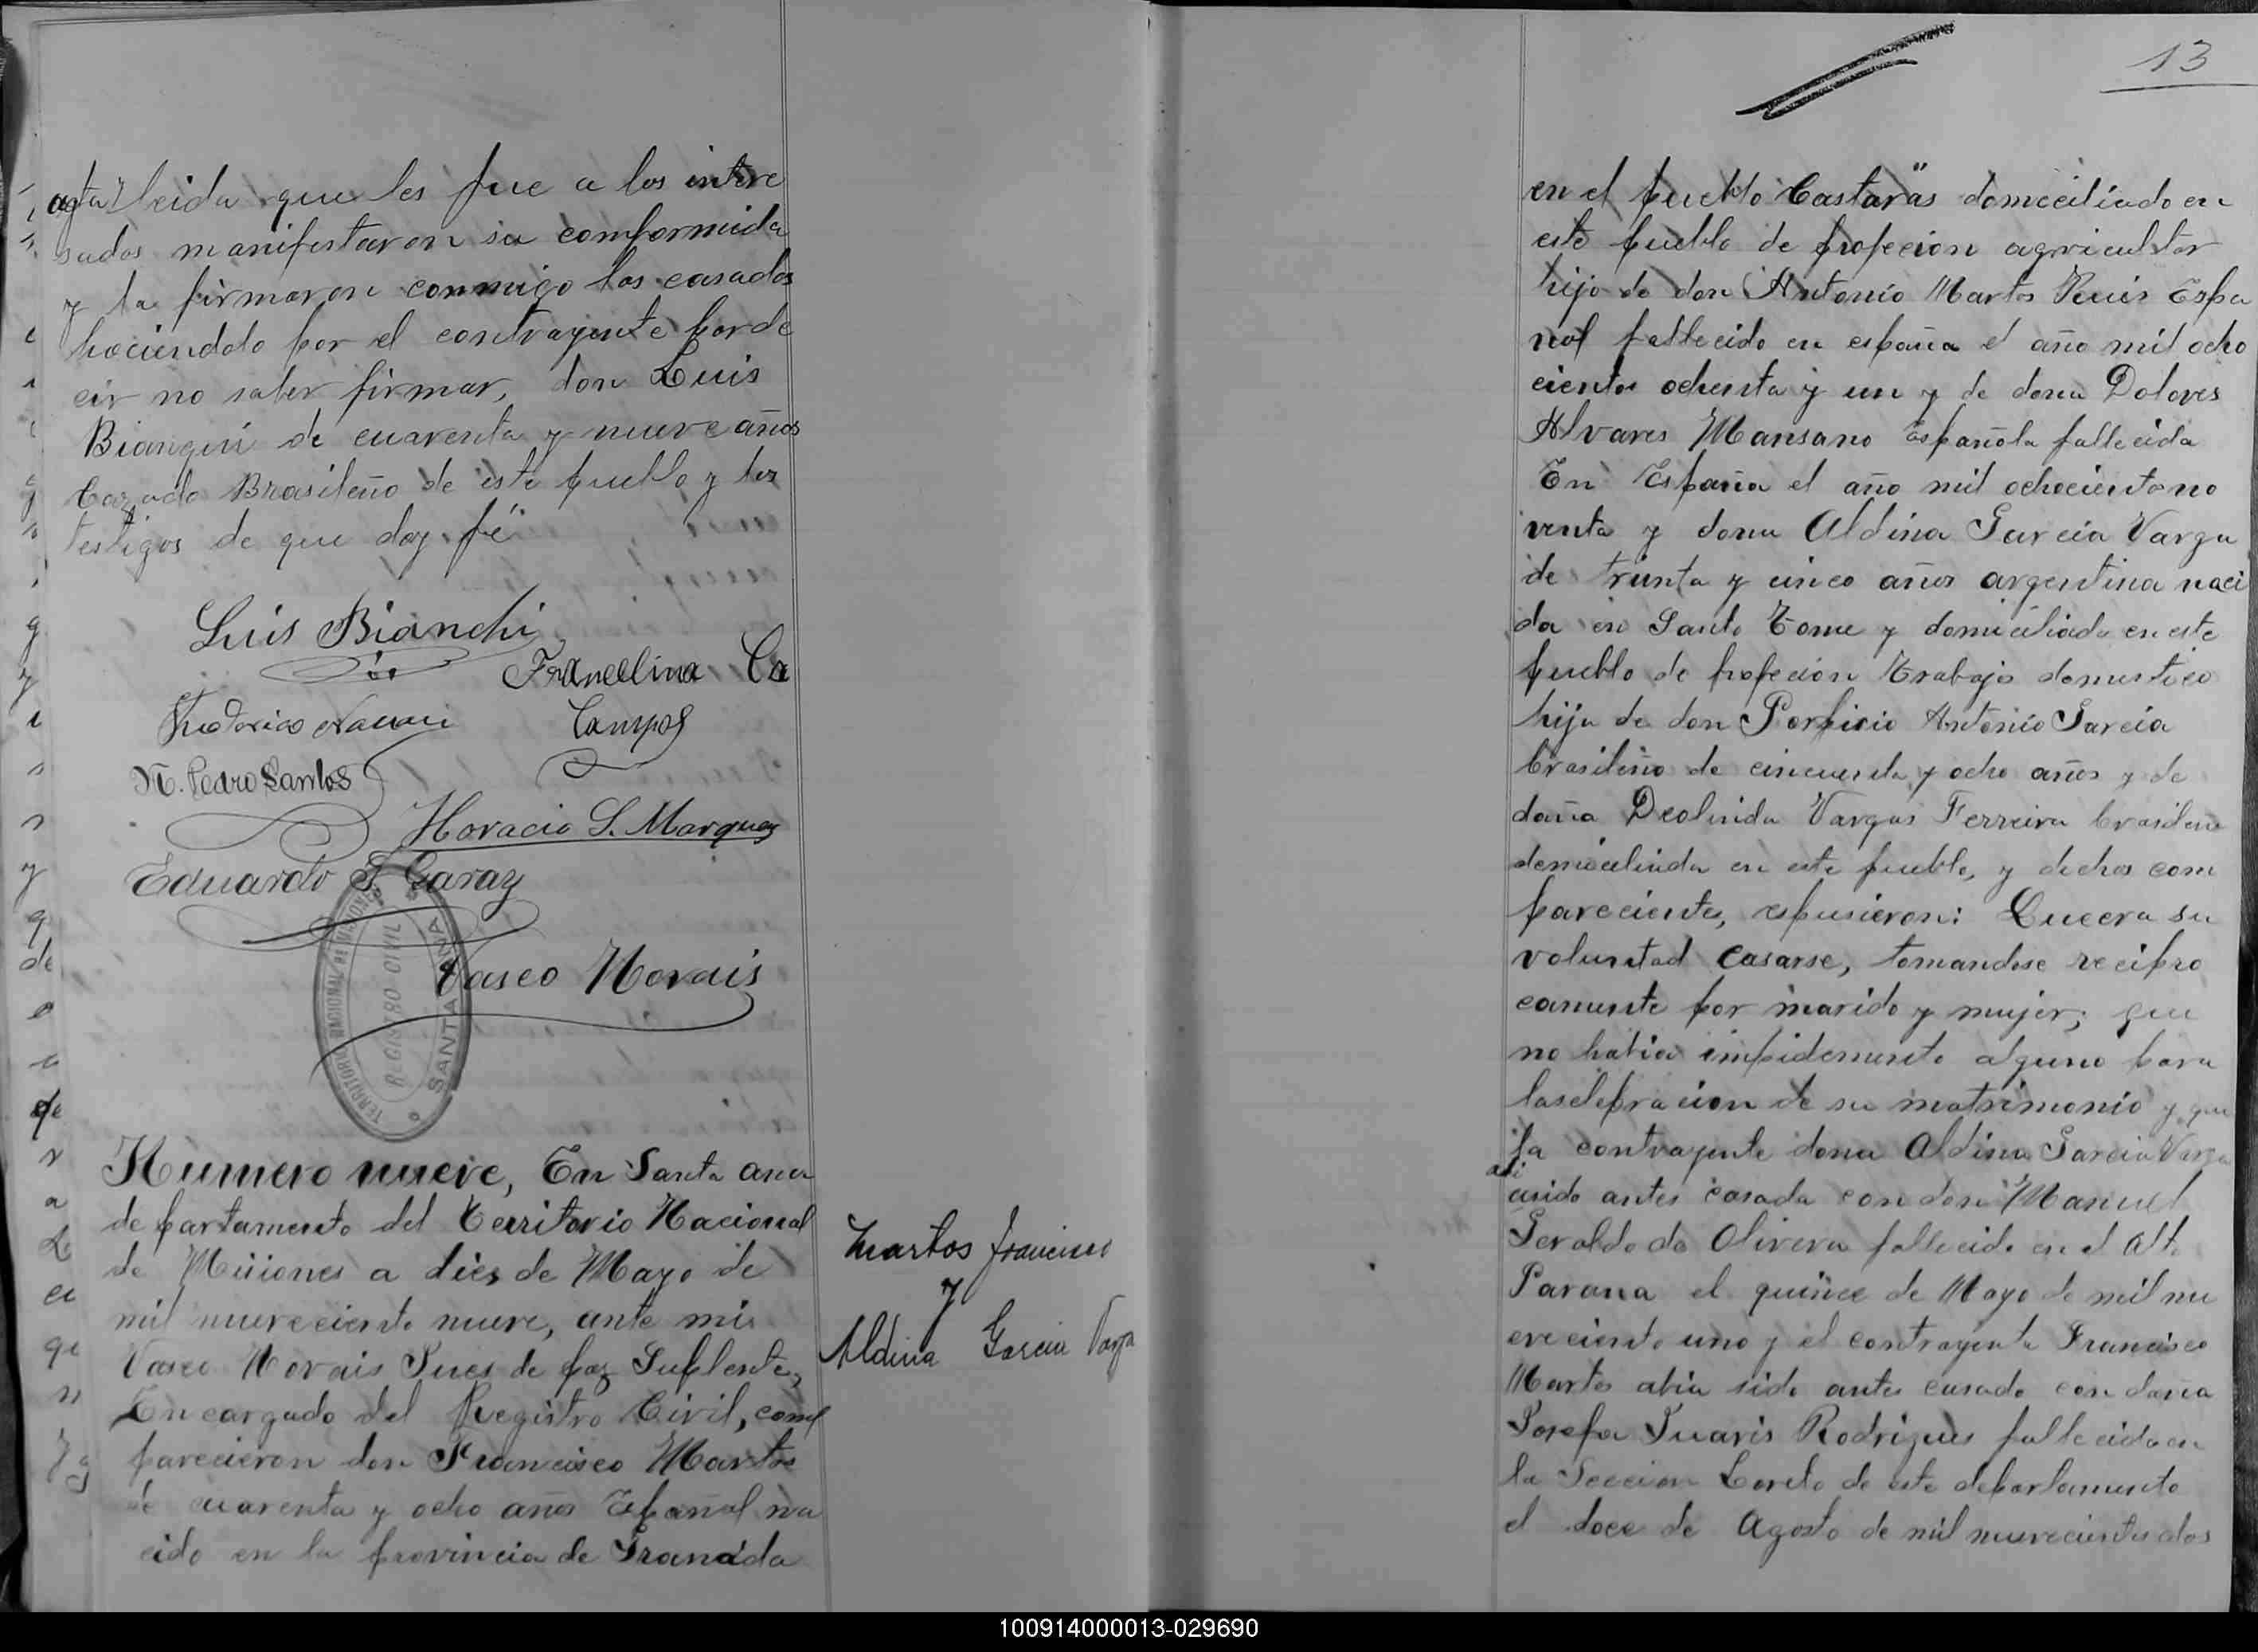 acta leida que les fue a los intere
sados manifestaron su comformida
y la firmaron conmigo los casados
hociendolo por el contrayente por de
cir no saber firmar, don Luis
Bianqui de cuarenta y nueve años
Cazado Brasileño de este pueblo y los
testigos de que doy fé
Luis Bianchi
Francelina Ca
Campos
Pedro Santos
Horacio S. Marques
Eduardo S Garay
TERRITORIO NACIONAL DE MISIONES
REGISTRO CIVIL
SANTA ANA
Vasco Novais
Numero nueve, En Santa ana
departamento del Territorio Nacional
de Misiones a dies de Mayo de
mil nueveciento nueve, ante mi
Vasco Novais Jues de paz Suplente,
Encargado del Registro Civil, com
parecieron don Francisco Martos
de cuarenta y ocho años Español na
cido en la provincia de Granada
Martos Francisco
y
Aldina Garcia Varga
13
en el pueblo Castaras domiciliado en
este pueblo de profecion agricultor
hijo de don Antonio Martos Ruis Espa
nol fallecido en españa el año mil ocho
cientos ochenta y un y de dona Dolores
Alvares Mansano Española fallecida
En España el año mil ochociento no
venta y dona Aldina Garcia Varga
de trinta y cinco años argentina naci
da en Santo Tome y domiciliada en este
pueblo de profecion trabajo domestico
hija de don Porfirio Antonio Garcia
brasileño de cincuenta y ocho años y de
doña Deolinda Vargas Ferreira brasilena
domiciliada en este pueblo, y dichos com
parecientes, espusieron: Queera su
voluntad casarse, tomandose recipro
camente por marido y mujer; que
no habia impidemento alguno para
laselebracion de su matrimonio y que
la contrayente dona Aldina Garcia Varga
abi
asido antes casada con don Manuel
Geraldo de Olivera fallecido en el Alto
Parana el quince de Mayo de mil nu
eveciento uno y el contrayente Francisco
Martos abia sido antes casado con doña
Josefa Juaris Rodrigues fallecida en
la Seccion Loreto de este departamento
el doce de Agosto de mil nuevecientos dos
100914000013-029690